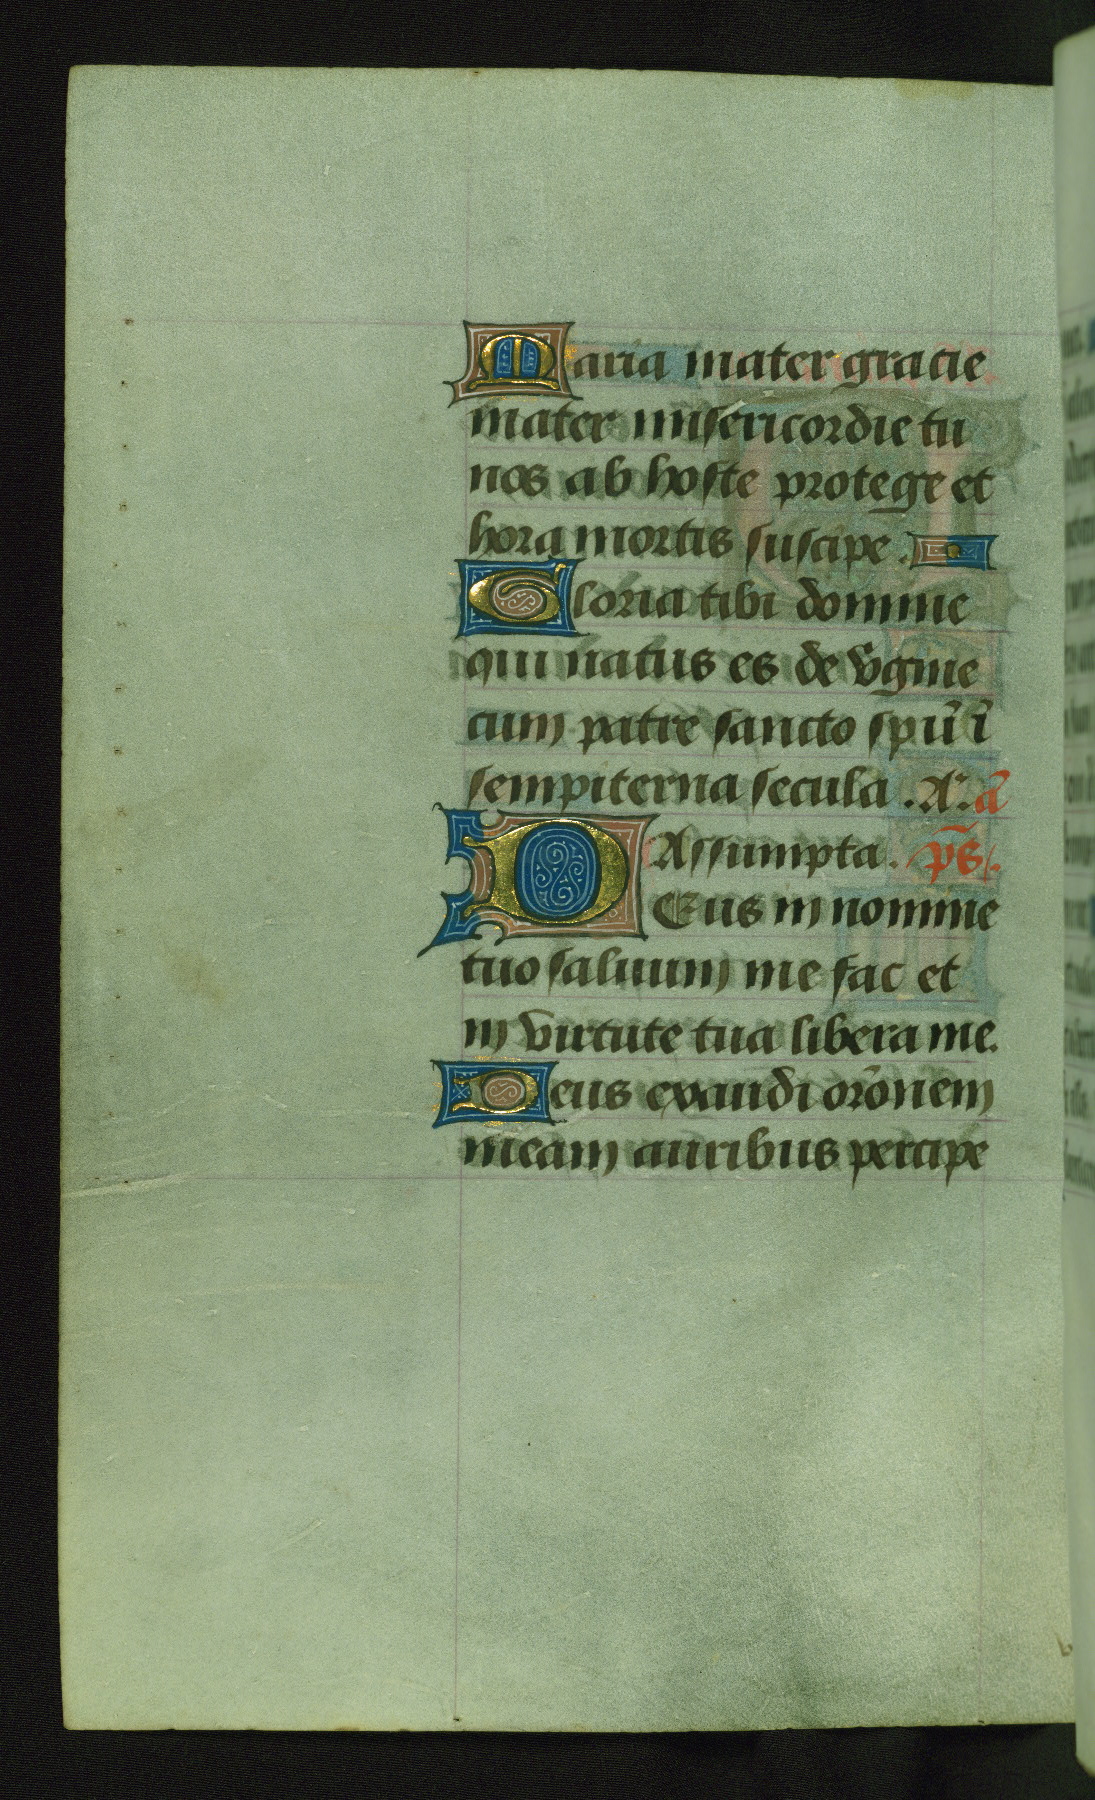 Maria mater gracie
mater misericordie tu
nos ab hoste protege et
hora mortis suscipe.
Gloria tibi domine
qui natus es de v̄gine
cum patre sancto spū ī
sempiterna secula. A. ā
Assumpta. ps̄.
DEus in nomine
tuo saluum me fac et
in virtute tua libera me.
Deus exaudi orōnem
meam auribus percipe